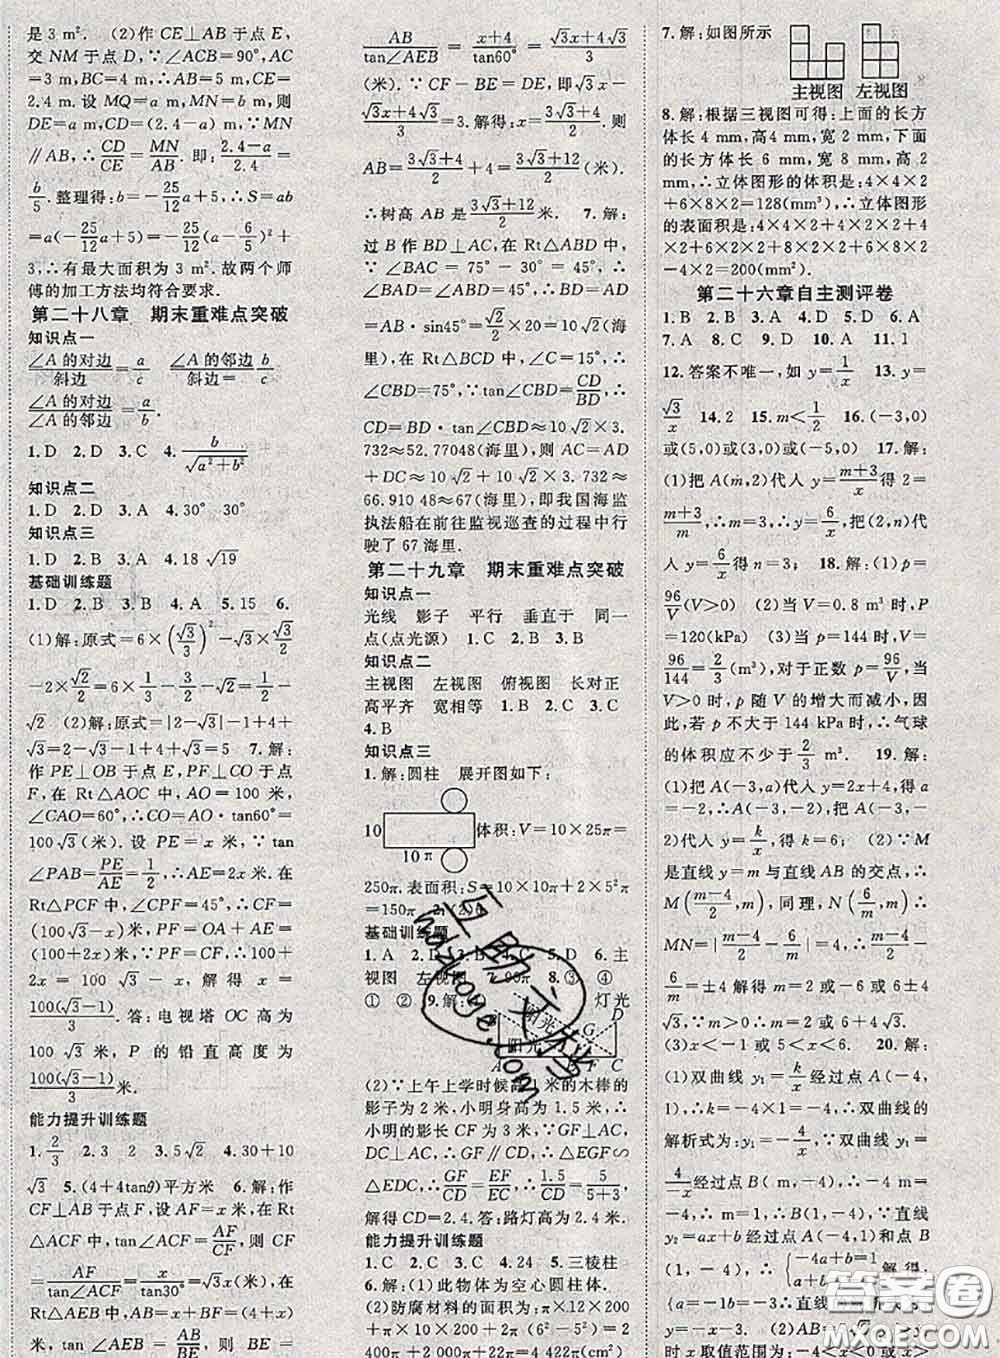 是3 m². (2)作CE⊥AB于点E,
交NM于点D,∵∠ACB=90°,AC
=3 m,BC=4 m,∴AB=5 m,CE=
2.4 m. 设 MQ=a m,MN=b m,则
DE=a m,CD=(2.4-a)m.∵MN
∥AB,∴CD/CE=MN/AB. 即:(2.4-a)/2.4=
b/5.整理得:b=-25/12a+5,∴S=ab
=a(-25/12a+5)=-25/12(a-6/5)²+
3,∴有最大面积为3 m².故两个师
傅的加工方法均符合要求.
第二十八章 期末重难点突破
知识点一
∠A的对边/斜边=a/c ∠A的邻边/斜边 b/c
∠A的对边/∠A的邻边=a/b.
1.D 2.D 3.C 4.b/√(a²+b²)
知识点二
1.D 2.D 3.A 4.30° 30°
知识点三
1.D 2.B 3.A 4.18√19
基础训练题
1.D 2.B 3.B 4.A 5.15 6.
(1)解:原式=6×(√3/3)²-√3×√3/2
-2×√2/2=6×1/3-3/2-√2=1/2-
√2 (2)解:原式=|2-√3|+√4+
√3=2-√3+1+√3+√3=5 7.解:
作PE⊥OB于点E,PF⊥CO于点
F,在Rt△AOC中,AO=100米,
∠CAO=60°,∴CO=AO·tan60°=
100√3(米).设 PE=x米,∵tan
∠PAB=PE/AE=1/2,∴AE=2x.在
Rt△PCF中,∠CPF=45°,CF=
(100√3-x)米,PF=OA+AE=
(100+2x)米,∵PF=CF,∴100+
2x = 100√3 - x,解得 x =
100(√3-1)/3.答:电视塔OC高为
100√3米,P的铅直高度为
100(√3-1)/3米.
能力提升训练题
1.2/3 2.3 2 3.5√2 4.30+10
√3 5.(4+4tanθ)平方米 6.解:作
CF⊥AB于点F,设AF=x米,在
Rt△ACF中,tan∠ACF=AF/CF,则CF
=AF/tan∠ACF=x/tan30°=√3x米,在
Rt△AEB中,AB=x+4米,BF=CD=4
米,tan∠AEB=AB/BE,则BE=
AB/tan∠AEB=(x+4)/tan60°=(√3x+4√3)/3
(米).∵CF-BE=DE,即√3x-
(√3x+4√3)/3=3.解得:x=(3√3+4)/2.则
AB=(3√3+4)/2+4=(3√3+12)/2(米)
∴树高AB是(3√3+12)/2米. 7.解:
过B作BD⊥AC,在Rt△ABD中,
∠BAC = 75° - 30° = 45°,∴BD=
AB·sin45°=√2/2×20=10√2(海
里),在Rt△BCD中,∠C=15°,
∠CBD=75°,∵tan∠CBD=CD/BD,∴
CD=BD·tan∠CBD≈10√2×3.
732≈52.77048(海里),则AC=AD
+DC≈10√2+10√2×3.732≈
66.91048≈67(海里),即我国海监
执法船在前往监视巡查的过程中行
驶了67海里.
第二十九章 期末重难点突破
知识点一
光线 影子 平行 垂直于 同一
点(点光源) 1.C 2.B 3.B
知识点二
主视图 左视图 俯视图 长对正
高平齐 宽相等 1.B 2.C 3.C
4.B
知识点三
1.解:圆柱 展开图如下:
10 体积:V=10×25π=
10π
250π.表面积:S=10×10π+2×5²π
=150π
基础训练题
1.A 2.D 3.B 4.C 5.D 6.主
视图 左视图 7.90π 8.③ ④
① ② 9.解: 灯光
阳光 G D
阳光
A F C
(2)∵上午上学时候高1米的木棒的
影子为2米,小明身高为1.5米,∴
小明的影长CF为3米,∵GF⊥AC,
DC⊥AC,∴GF∥CD,∴△EGF∽
△EDC,∴GF/CD=EF/EC,∴1.5/CD=5/(5+3),
解得CD=2.4.答:路灯高为2.4米.
能力提升训练题
1.C 2.C 3.C 4.24 5.三棱柱
6.解:(1)此物体为空心圆柱体.
(2)防腐材料的面积为π×12×
7.解:如图所示
主视图 左视图
8.解:根据三视图可得:上面的长方
体长4 mm,高4 mm,宽2 mm,下面
的长方体长6 mm,宽8 mm,高2
mm,∴立体图形的体积是:4×4×2
+6×8×2=128(mm³),∴立体图形
的表面积是:4×4×2+4×2×2+4
×2+6×2×2+8×2×2+6×8×2
-4×2=200(mm²).
第二十六章自主测评卷
1.B 2.B 3.C 4.D 5.D 6.A
7.A 8.A 9.D 10.A 11.1
12.答案不唯一,如y=1/x 13.y=
√3/x 14.2 15.m<1/2 16.(-3,0)
或(5,0)或(3,0)或(-5,0) 17.解:
(1)把A(m,2)代入y=(m+3)/x得2=
(m+3)/m,∴m=3,∴y=6/x,把(2,n)代
入y=6/x得n=3; 18.解:(1)p=
96/V(V>0) (2)当V=0.8 m³时,P
=120(kPa) (3)当p=144时,V=
96/144=2/3(m³),对于正数p=96/V,当V
>0时,p随V的增大而减小,因
此,若p不大于144 kPa时,∴气球
的体积应不少于2/3 m³. 19.解:
(1)把A(-3,a)代入y=x+1,得a
=-2,∴A(-3,-2),把A(-3,-
2)代入y=k/x,得k=6; (2)∵M
是直线y=m与直线AB的交点,
∴M((m-4)/2,m),同理,N(6/m,m),∴
MN=|(m-4)/2-6/m|=4,∴(m-4)/2-
6/m=±4解得m=2或-6或6±
4√3∵m>0,∴m=2或6+4√3;
(3)x<-1或5<x<6. 20.解:
(1)∵双曲线y₁=k/x经过点A(-1,
4),∴k=-1×4=-4,∴双曲线的
解析式为:y₁=-4/x,∵双曲线y₁=
-4/x经过点B(m,-4),∴-4m=-
4,∴m=1,∴B(1,-4),∵直线
y₂=ax+b经过点A(-1,4)和点
B(1,-4),∴{-a+b=4 a+b=-4解得: